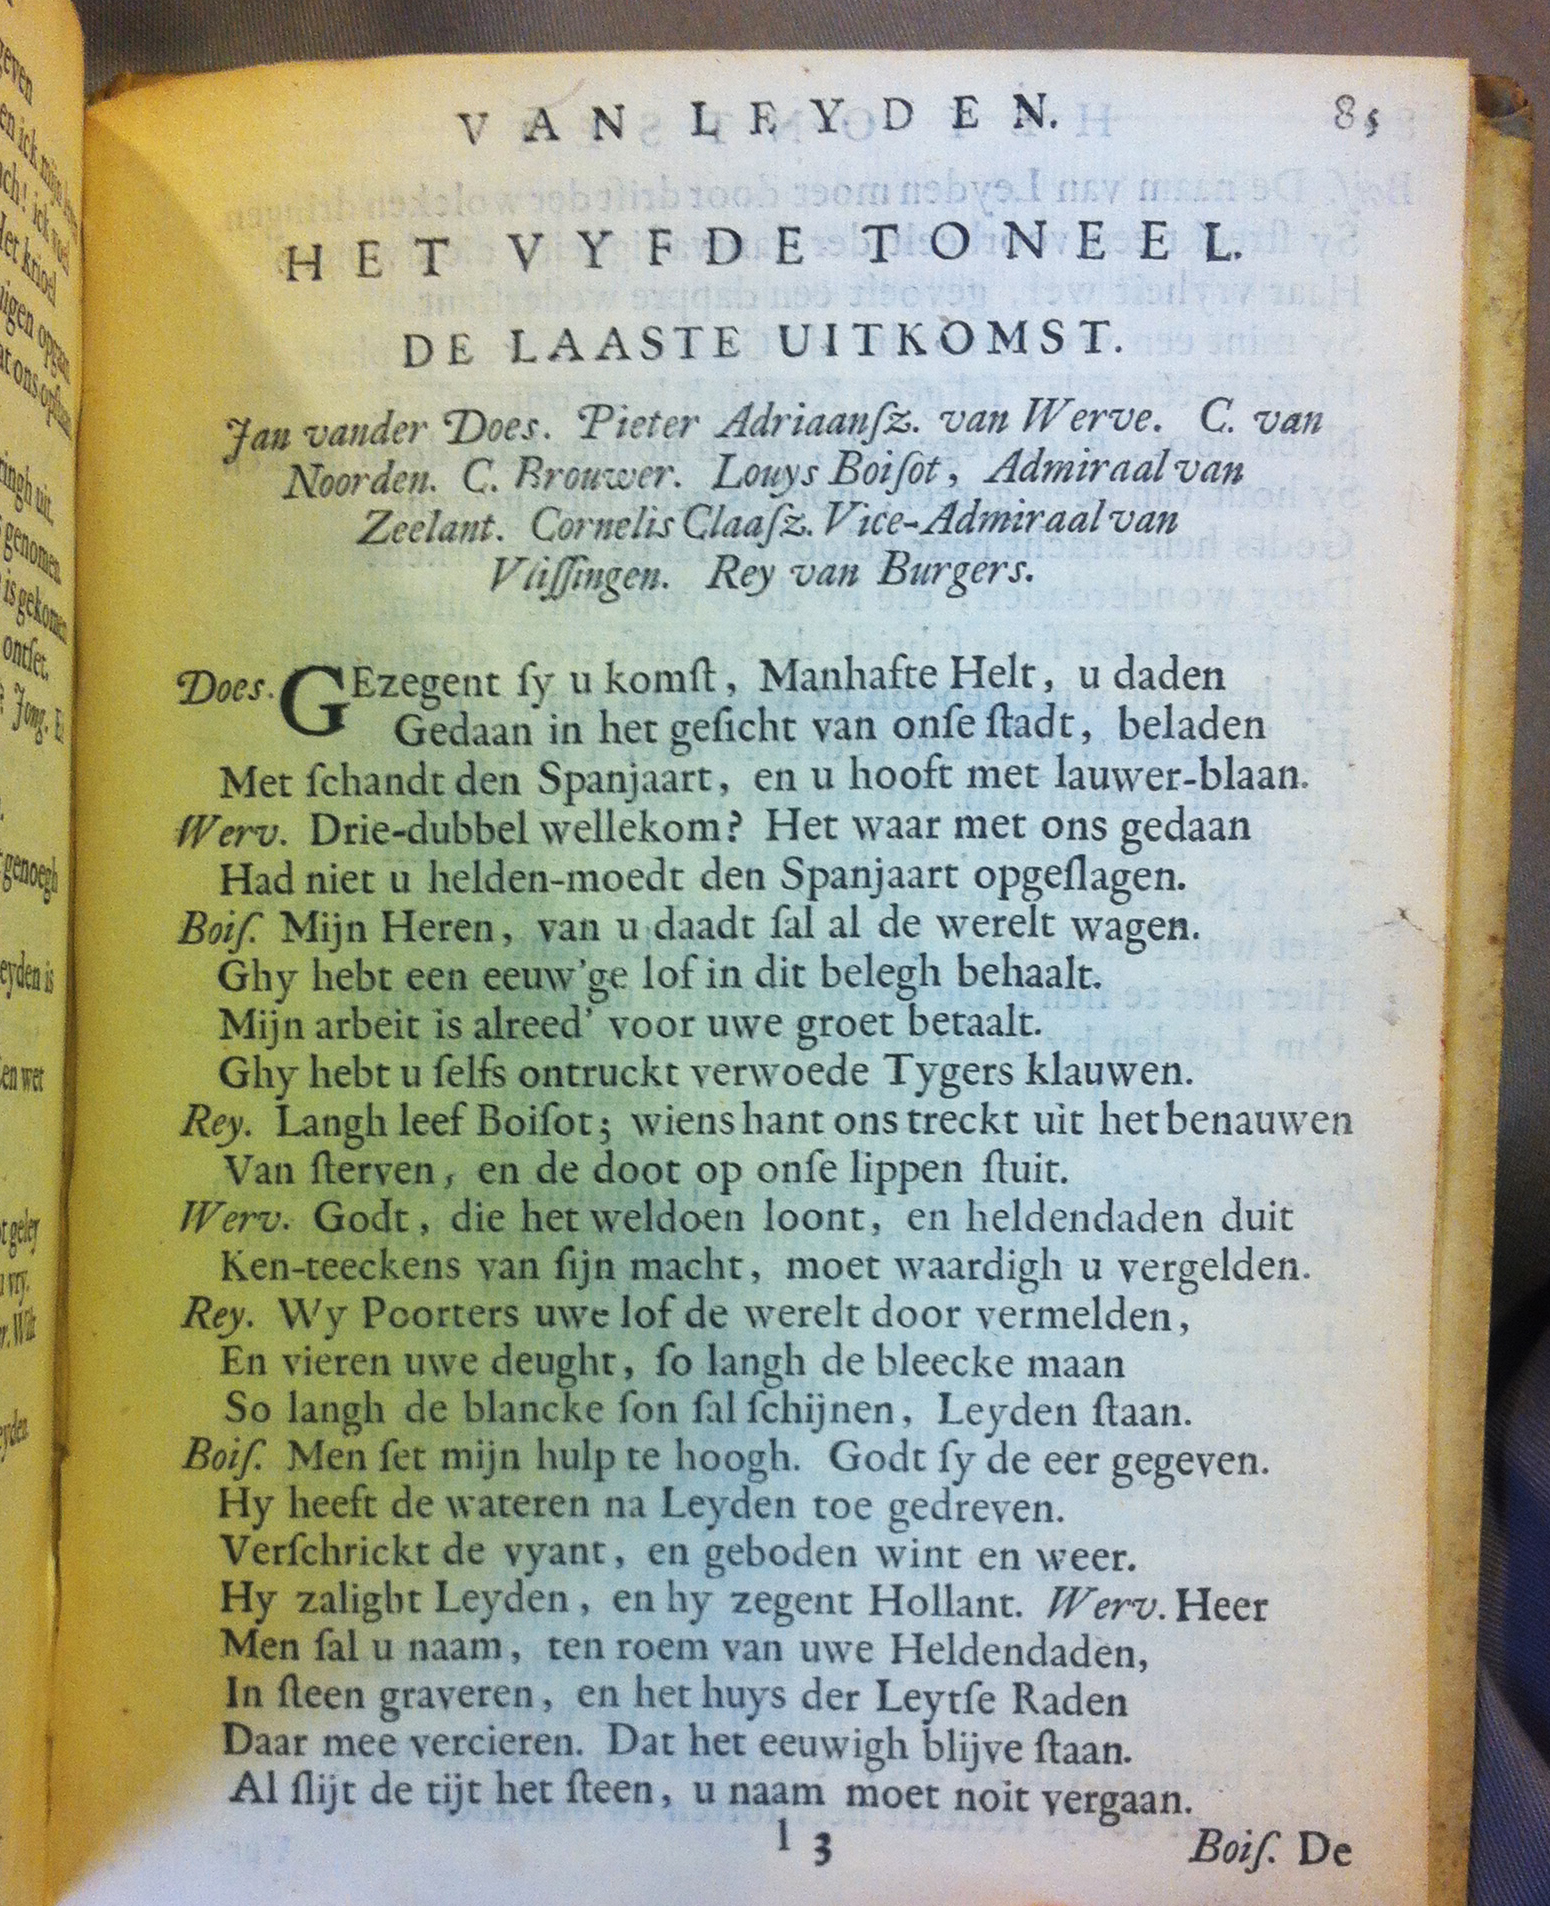 geven
en ick mijn
ach! ick voel
Het krioel
uigen opgaan
at ons
ringh uit.
genomen
is gekomen
ontſet.
Jong. E
genoegh
eyden is
en wet
ot geley
vry.
r. Wilt
eyden
VAN LEYDEN. 85
HET VYFDE TONEEL.
DE LAASTE UITKOMST.
Jan vander Does. Pieter Adriaanſz. van Werve. C. van
Noorden. C. Brouwer. Louys Boiſot, Admiraal van
Zeelant. Cornelis Claaſz. Vice-Admiraal van
Vliſſingen. Rey van Burgers.
Does. GEzegent ſy u komſt, Manhafte Helt, u daden
Gedaan in het geſicht van onſe ſtadt, beladen
Met ſchandt den Spanjaart, en u hooft met lauwer-blaan.
Werv. Drie-dubbel wellekom? Het waar met ons gedaan
Had niet u helden-moedt den Spanjaart opgeſlagen.
Boiſ. Mijn Heren, van u daadt ſal al de werelt wagen.
Ghy hebt een eeuw'ge lof in dit belegh behaalt.
Mijn arbeit is alreed' voor uwe groet betaalt.
Ghy hebt u ſelfs ontruckt verwoede Tygers klauwen.
Rey. Langh leef Boiſot; wiens hant ons treckt uit het benauwen
Van ſterven, en de doot op onſe lippen ſtuit.
Werv. Godt, die het weldoen loont, en heldendaden duit
Ken-teeckens van ſijn macht, moet waardigh u vergelden.
Rey. Wy Poorters uwe lof de werelt door vermelden,
En vieren uwe deught, ſo langh de bleecke maan
So langh de blancke ſon ſal ſchijnen, Leyden ſtaan.
Boiſ. Men ſet mijn hulp te hoogh. Godt ſy de eer gegeven.
Hy heeft de wateren na Leyden toe gedreven.
Verſchrickt de vyant, en geboden wint en weer.
Hy zalight Leyden, en hy zegent Hollant. Werv. Heer
Men ſal u naam, ten roem van uwe Heldendaden,
In ſteen graveren, en het huys der Leytſe Raden
Daar mee vercieren. Dat het eeuwigh blijve ſtaan.
Al ſlijt de tijt het ſteen, u naam moet noit vergaan.
l 3 Boiſ. De